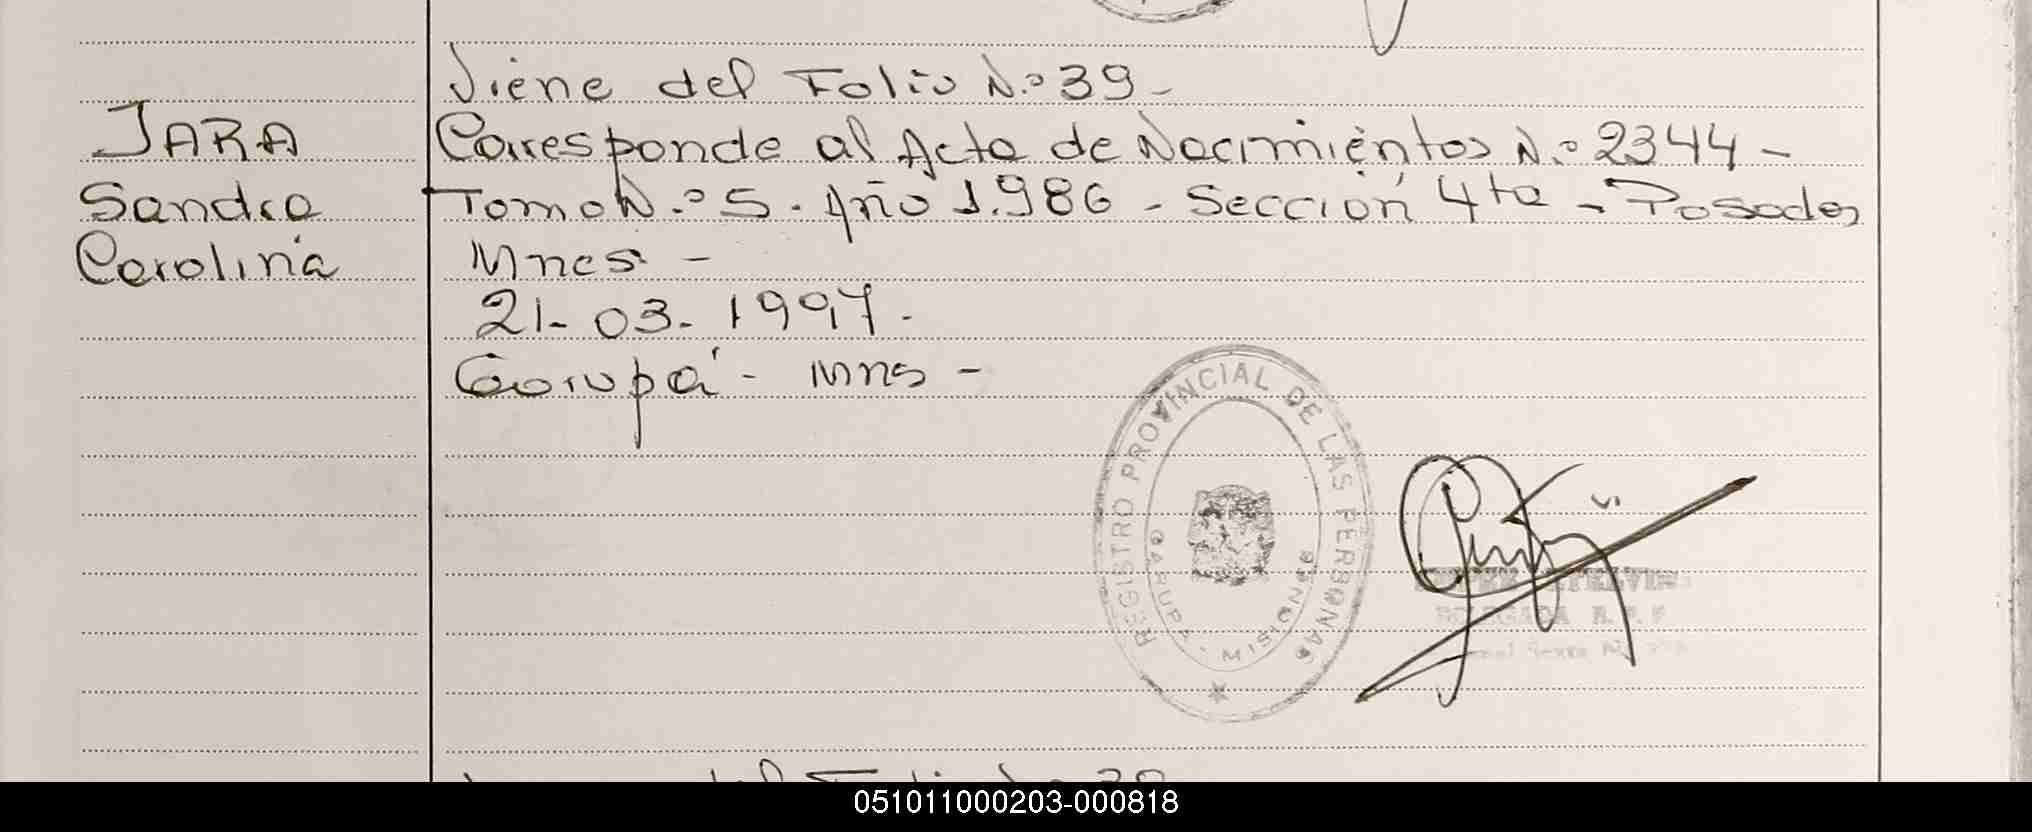 Viene del Folio N.º 39 -
JARA
Corresponde al Acta de Nacimientos N.º 2344 -
Sandra
Tomo N.º 5. Año 1.986 - Sección 4ta - Posadas
Carolina
Mnes. -
21- 03- 1997.
Garupá - Mnes -
REGISTRO PROVINCIAL DE LAS PERSONAS
GARUPA - MISIONES
DELEGADA R.P.P
051011000203-000818